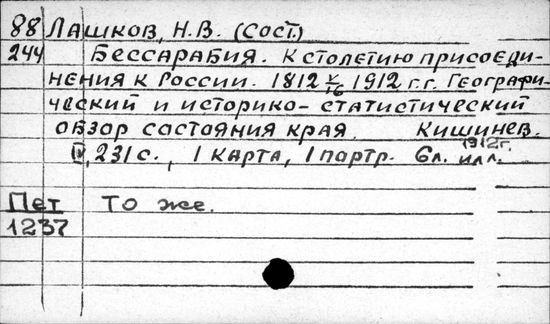 88 Лашков, Н.В. (Сост.)
244 Бессарабия. К столетию присоеди-
нения к России. 1812 V/16 1912 г.г. Географи-
ческий и историко-статистический
обзор состояния края. Кишинев.
1912 г.
, 231 с., 1 карта, 1 портр. 6 л. илл.
Пет То же.
1237